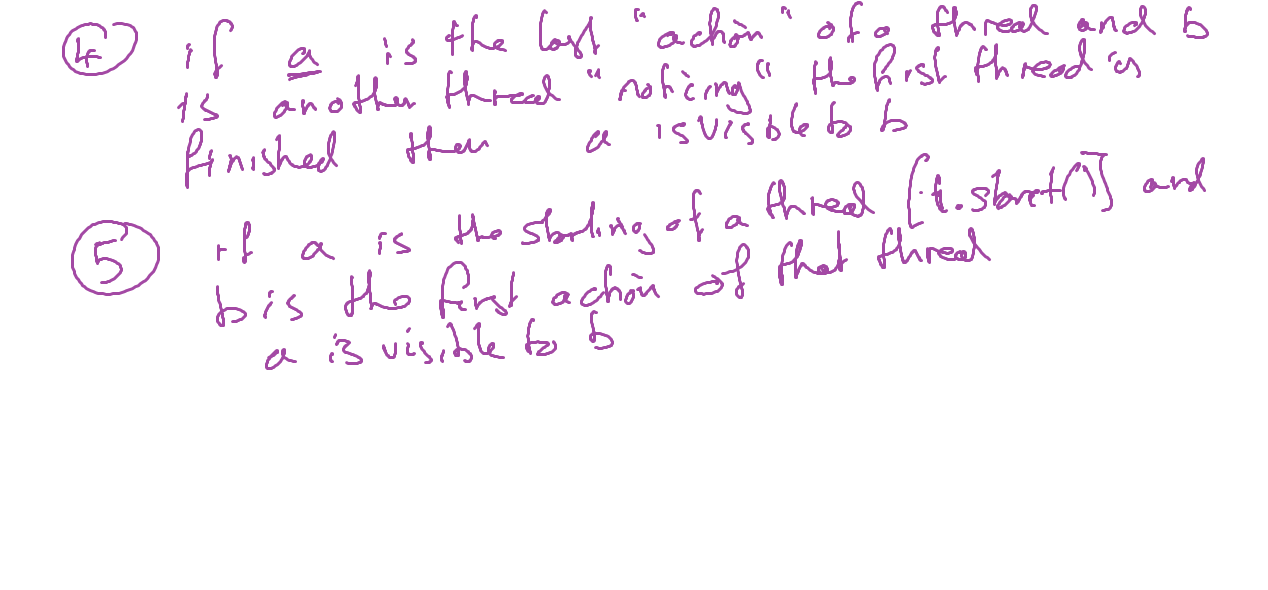 ④ if a is the last "action" of a thread and b
is another thread "noticing" the first thread is
finished then a is visible to b
⑤ if a is the starting of a thread [t.start()] and
b is the first action of that thread
a is visible to b